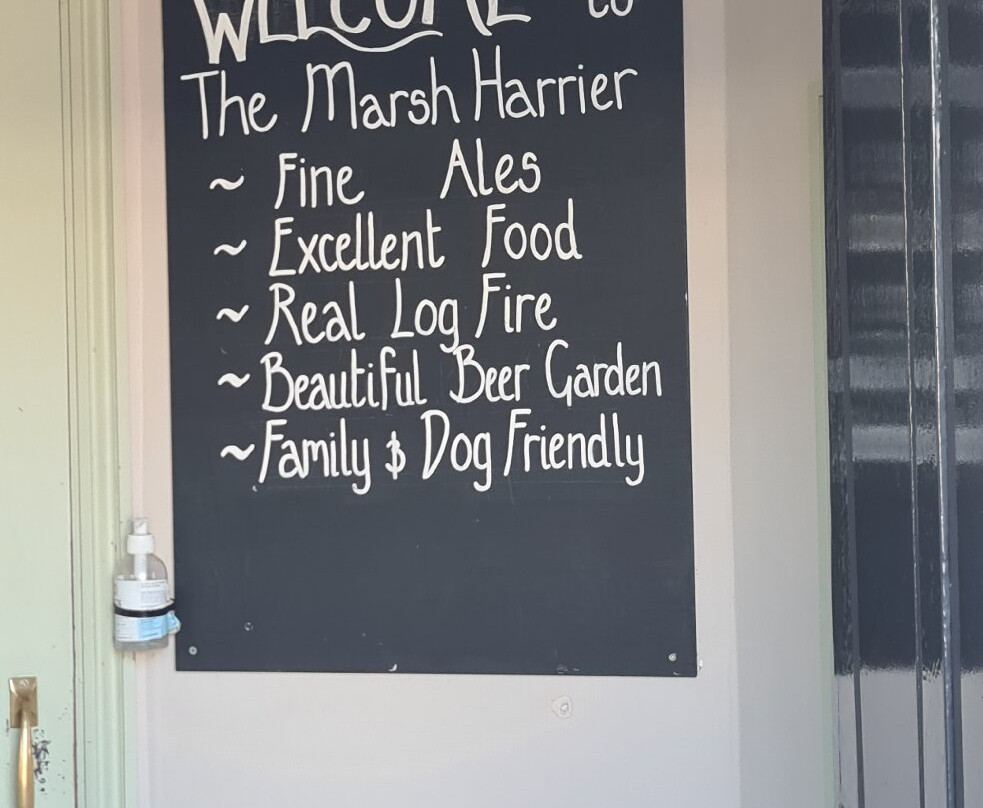 WELCOME to
The Marsh Harrier
~ Fine Ales
~ Excellent Food
~ Real Log Fire
~ Beautiful Beer Garden
~ Family & Dog Friendly